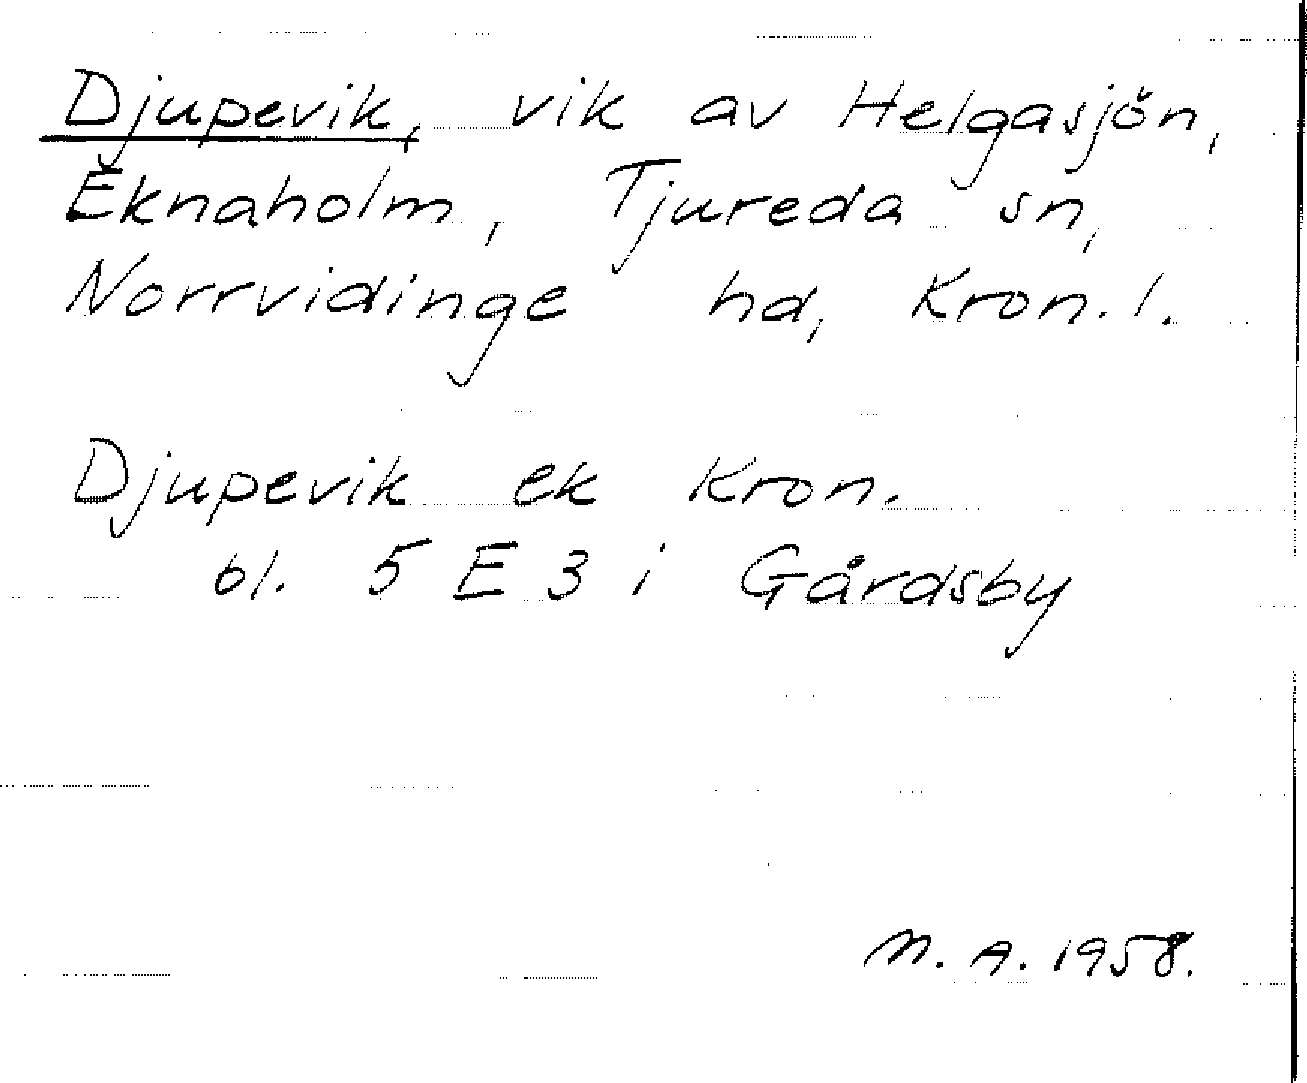 Djupevik, vik av Helgasjön,
Eknaholm, Tjureda sn,
Norrvidinge hd, Kron. l.
Djupevik ek Kron.
bl. 5 E 3 i Gårdsby
M. A. 1958.